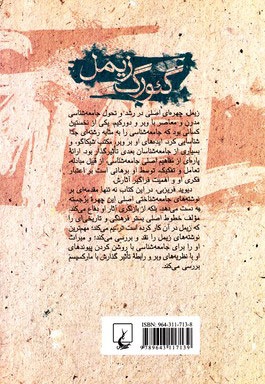 گئورگ زیمل
زیمل چهره‌ای اصلی در رشد و تحول جامعه‌شناسی
مدرن و معاصر با وبر و دورکیم، یکی از نخستین
کسانی بود که جامعه‌شناسی را به مثابه رشته‌ای جدا
شناسایی کرد. ایده‌های او بر وبر، مکتب شیکاگو، و
بسیاری از جامعه‌شناسان بعدی تأثیر گذار بود. ارائهٔ
پاره‌ای از مفاهیم اصلی جامعه‌شناسی، از قبیل مبادله،
تعامل و تفکیک، توسط او برهانی است بر اعتبار
فکری او و اهمیت فراگیر آثارش.
دیوید فریزبی، در این کتاب نه تنها مقدمه‌ای بر
نوشته‌های جامعه‌شناختی اصلی این چهرهٔ برجسته
به دست می‌دهد، بلکه از بازنگری آثار او دفاع می‌کند.
مؤلف خطوط اصلی بستر فرهنگی و تاریخی‌ای را
که زیمل در آن کار کرده است ترسیم می‌کند؛ مهمترین
نوشته‌های زیمل را نقد و بررسی می‌کند؛ و میراث
او را برای جامعه‌شناسی با روشن کردن پیوندهای
او با نظریه‌های وبر و رابطهٔ تأثیر گذارش با مارکسیسم
بررسی می‌کند.
ISBN: 964-311-713-8
9 789643 117139